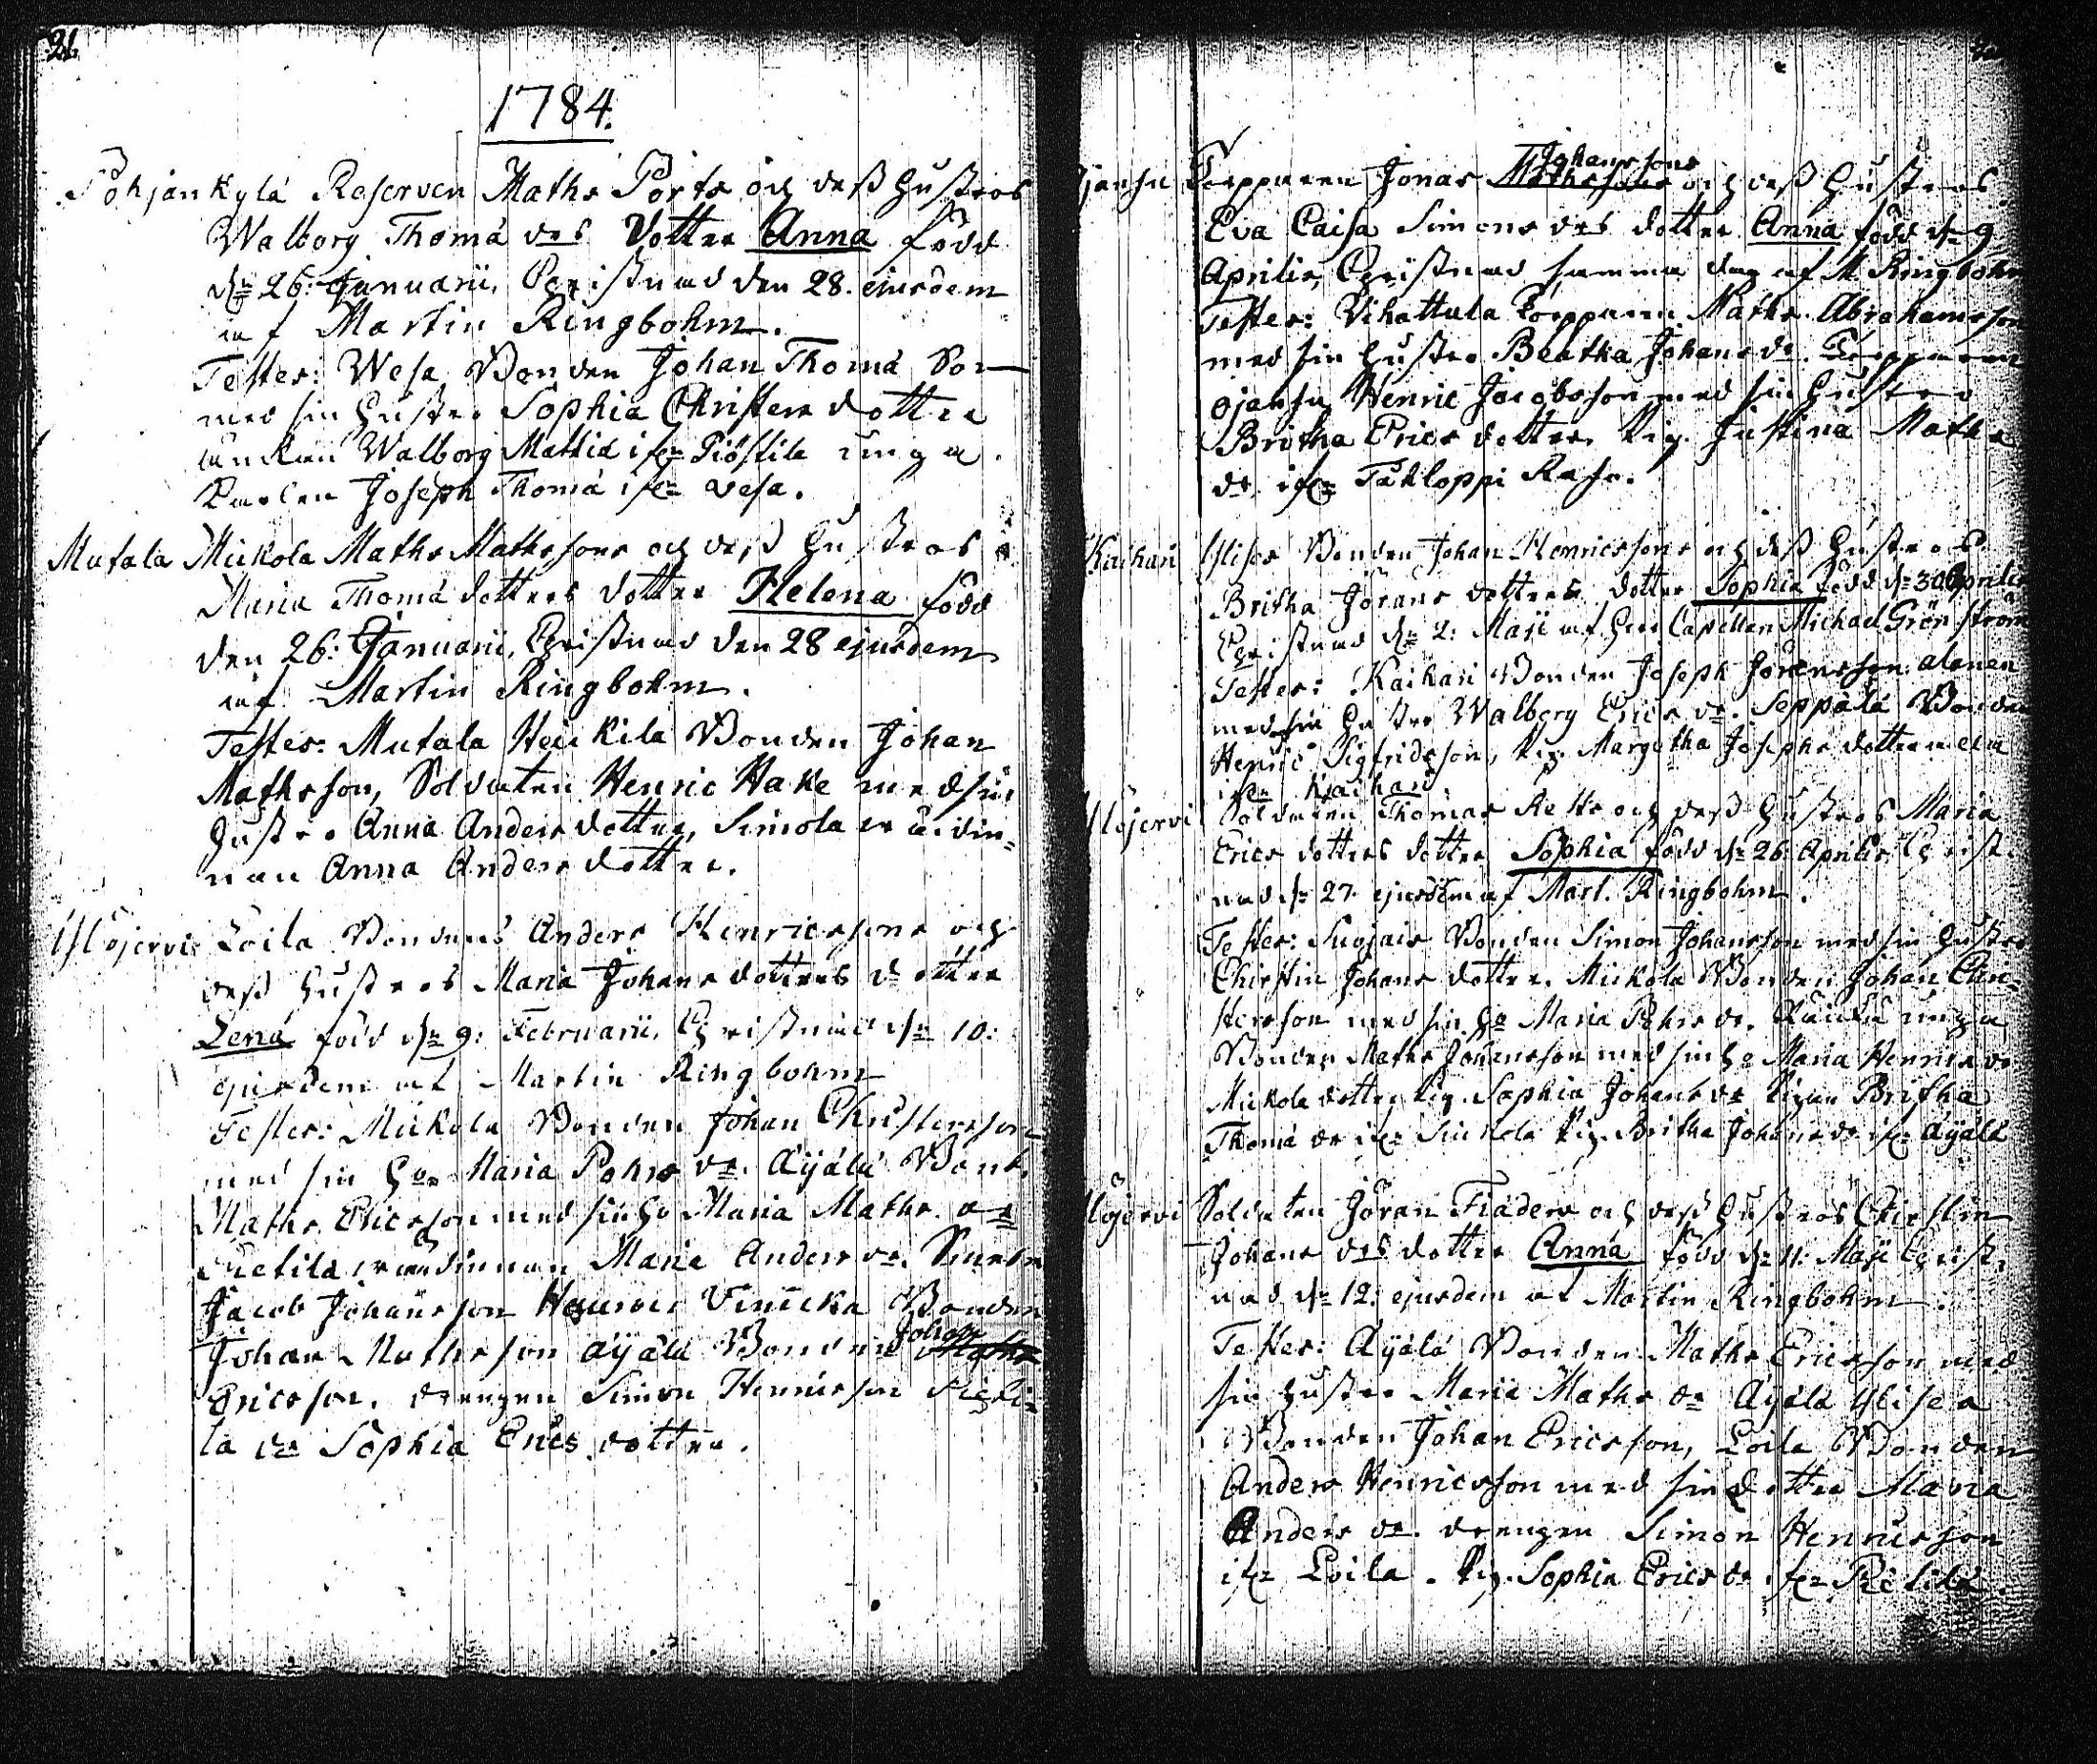 1784.
Pohjankylä Reserven Maths Ports och dess hustrus
Walborg Thomä drs dotter Anna född
dn 26: Januarii, Christnad den 28. ejusdem
af Martin Ringbohm.
Testes: Wesa Bonden Johan Thomä Son
med sin hustru Sophia Christers dotter
Walborg Mattsd ifrn
Joseph Thomä ifrn Vesa.
Mutala Mickola Maths Mathssons och dess hustrus
Maria Thomä dotters dotter Helena född
den 26: Januarii, Christnad den 28 ejusdem
af Martin Ringbohm.
Testes: Mutala Heickilä Bonden Johan
Mathsson, Soldaten Henric Hake med sin
hustru Anna Anders dotter, Simola
Anna Anders dotter.
Ylöjervi Loila Bondens Anders Henricssons och
dess hustrus Maria Johans dotters dotter
Lena född dn 9: Februarii, Christnad dn 10:
ejusdem af Martin Ringbohm
Testes: Mickola Bonden Johan Christersson
med sin ho Maria Pehrs dr. Äyälä Bond.
Maths Ericsson med sin ho Maria Maths dr
Maria Anders dr.
Jacob Johansson Bonden
Johan Mathsson Äyälä Bonden Johan Maths
Ericsson. drengen Simon Henricsson
la dr Sophia Erics dotter.
Torpparen Jonas Mathssons Johanssons och dess hustrus
Eva Caisa Simons drs dotter Anna född dn 9
Aprilis, Christnad samma dag af M Ringbohm
Testes: Vihattula Torpparen Maths Abrahamsson
med sin hustru Beatha Johans dr. Torpparen
Ojansu Henric Jacobsson med sin hustru
Britha Erics dotter. Pig. Justina Maths
dr ifrn Takloppi Rasr.
Kaihari Ylises Bonden Johan Henricssons och dess hustrus
Britha Jörans dotters dotter Sophia född dn 30 Aprilis
Christnad dn 2: Maji af Herr Capellan Michael Grönström
Testes: Kaihari Bonden Joseph Jöransson alanen
med sin hustru Walborg Erics dr. Seppälä Bonden
Henric Sigfridsson, Pig. Margetha Josephs dotter
ifrn Kaihari
Ylöjervi Soldaten Thomas Rette och dess hustrus Maria
Erics dotters dotter Sophia född dn 26 Aprilis Christ-
nad dn 27. ejusdem af Mart. Ringbohm.
Testes: Suojais Bonden Simon Johansson med sin hustru
Christin Johans dotter. Mickola Bonden Johan Chri-
stersson med sin ho Maria Pehrs dr. unga
Bonden Maths Johansson med sin ho Maria Henrics dr
Mickola dotter Pig. Sophia Johans dr Pigan Britha
Thomä dr ifrn Simola Pig. Britha Johans dr ifrn Äyälä
Ylöjervi Soldaten Jöran Fiäders och dess hustrus Christin
Johans drs dotter Anna född dn 11. Maji Christ-
nad dn 12. ejusdem af Martin Ringbohm.
Testes: Äyälä Bonden Maths Ericsson med
sin hustru Maria Maths dr Äyälä Ylisea
Bonden Johan Ericsson, Loila Bonden
Anders Henricsson med sin dotter Maria
Anders dr. drengen Simon Henricsson
ifrn Loila. Pig. Sophia Erics dr ifrn